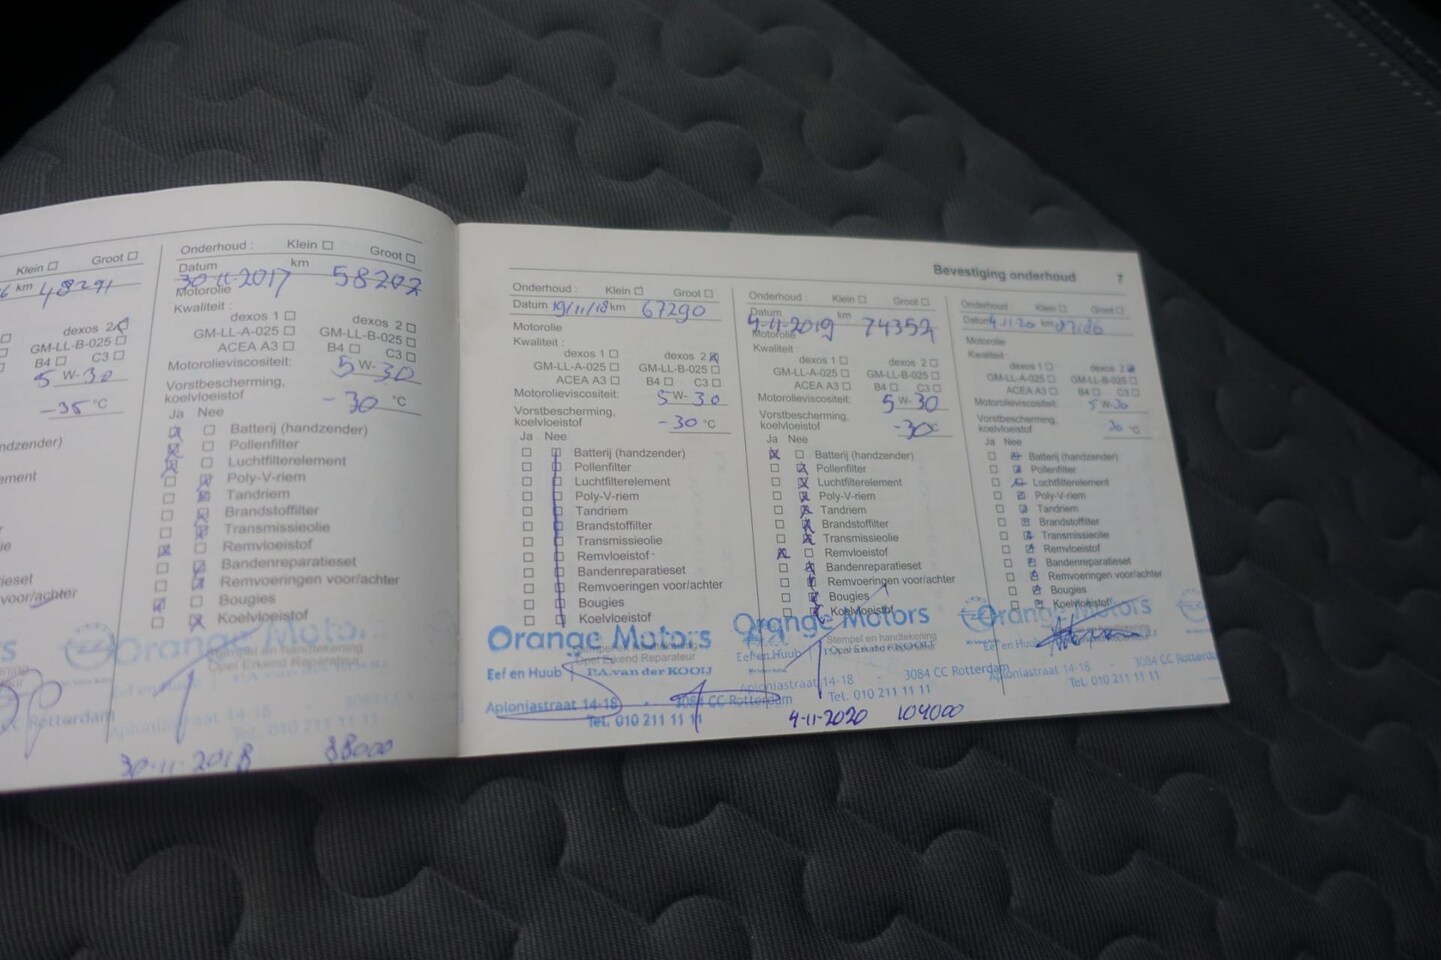 Klein Groot
km 48291
dexos 2
GM-LL-B-025
B4 C3
5 W-30
-35 °C
Rotterdam
Onderhoud : Klein Groot
Datum 30-11-2017 km 58202
Motorolie
Kwaliteit :
dexos 1 dexos 2
GM-LL-A-025 GM-LL-B-025
ACEA A3 B4 C3
Motorolieviscositeit: 5 W-30
Vorstbescherming,
koelvloeistof -30 °C
Ja Nee
Batterij (handzender)
Pollenfilter
Luchtfilterelement
Poly-V-riem
Tandriem
Brandstoffilter
Transmissieolie
Remvloeistof
Bandenreparatieset
Remvoeringen voor/achter
Bougies
Koelvloeistof
Orange Motors
Stempel en handtekening
Opel Erkend Reparateur
Eef en Huub P.A. van der KOOIJ
Aploniastraat 14-18
Tel. 010 211 11 11
30-11-2018 88000
Bevestiging onderhoud 7
Onderhoud : Klein Groot
Datum 19/11/18 km 67290
Motorolie
Kwaliteit :
dexos 1 dexos 2
GM-LL-A-025 GM-LL-B-025
ACEA A3 B4 C3
Motorolieviscositeit: 5 W-30
Vorstbescherming,
koelvloeistof -30 °C
Ja Nee
Batterij (handzender)
Pollenfilter
Luchtfilterelement
Poly-V-riem
Tandriem
Brandstoffilter
Transmissieolie
Remvloeistof
Bandenreparatieset
Remvoeringen voor/achter
Bougies
Koelvloeistof
Orange Motors
Stempel en handtekening
Opel Erkend Reparateur
Eef en Huub P.A. van der KOOIJ
Aploniastraat 14-18 - 3084 CC Rotterdam
Tel. 010 211 11 11
Onderhoud : Klein Groot
Datum 4-11-2019 74352
Motorolie
Kwaliteit :
dexos 1 dexos 2
GM-LL-A-025 GM-LL-B-025
ACEA A3 B4 C3
Motorolieviscositeit: 5 W-30
Vorstbescherming,
koelvloeistof -30 °C
Ja Nee
Batterij (handzender)
Pollenfilter
Luchtfilterelement
Poly-V-riem
Tandriem
Brandstoffilter
Transmissieolie
Remvloeistof
Bandenreparatieset
Remvoeringen voor/achter
Bougies
Koelvloeistof
Orange Motors
Stempel en handtekening
Opel Erkend
Eef en Huub
Aploniastraat 14-18 - 3084 CC Rotterdam
Tel. 010 211 11 11
4-11-2020 104000
Onderhoud : Klein Groot
Datum 4.11.20 km
Motorolie
Kwaliteit
dexos 1 dexos 2
GM-LL-A-025 GM-LL-B-025
ACEA A3 B4 C3
Motorolieviscositeit: 5 W-30
Vorstbescherming,
koelvloeistof 30 °C
Ja Nee
Batterij (handzender)
Pollenfilter
Luchtfilterelement
Poly-V-riem
Tandriem
Brandstoffilter
Transmissieolie
Remvloeistof
Bandenreparatieset
Remvoeringen voor/achter
Bougies
Koelvloeistof
Orange Motors
Eef en Huub
Aploniastraat 14-18 - 3084 CC Rotterdam
Tel. 010 211 11 11